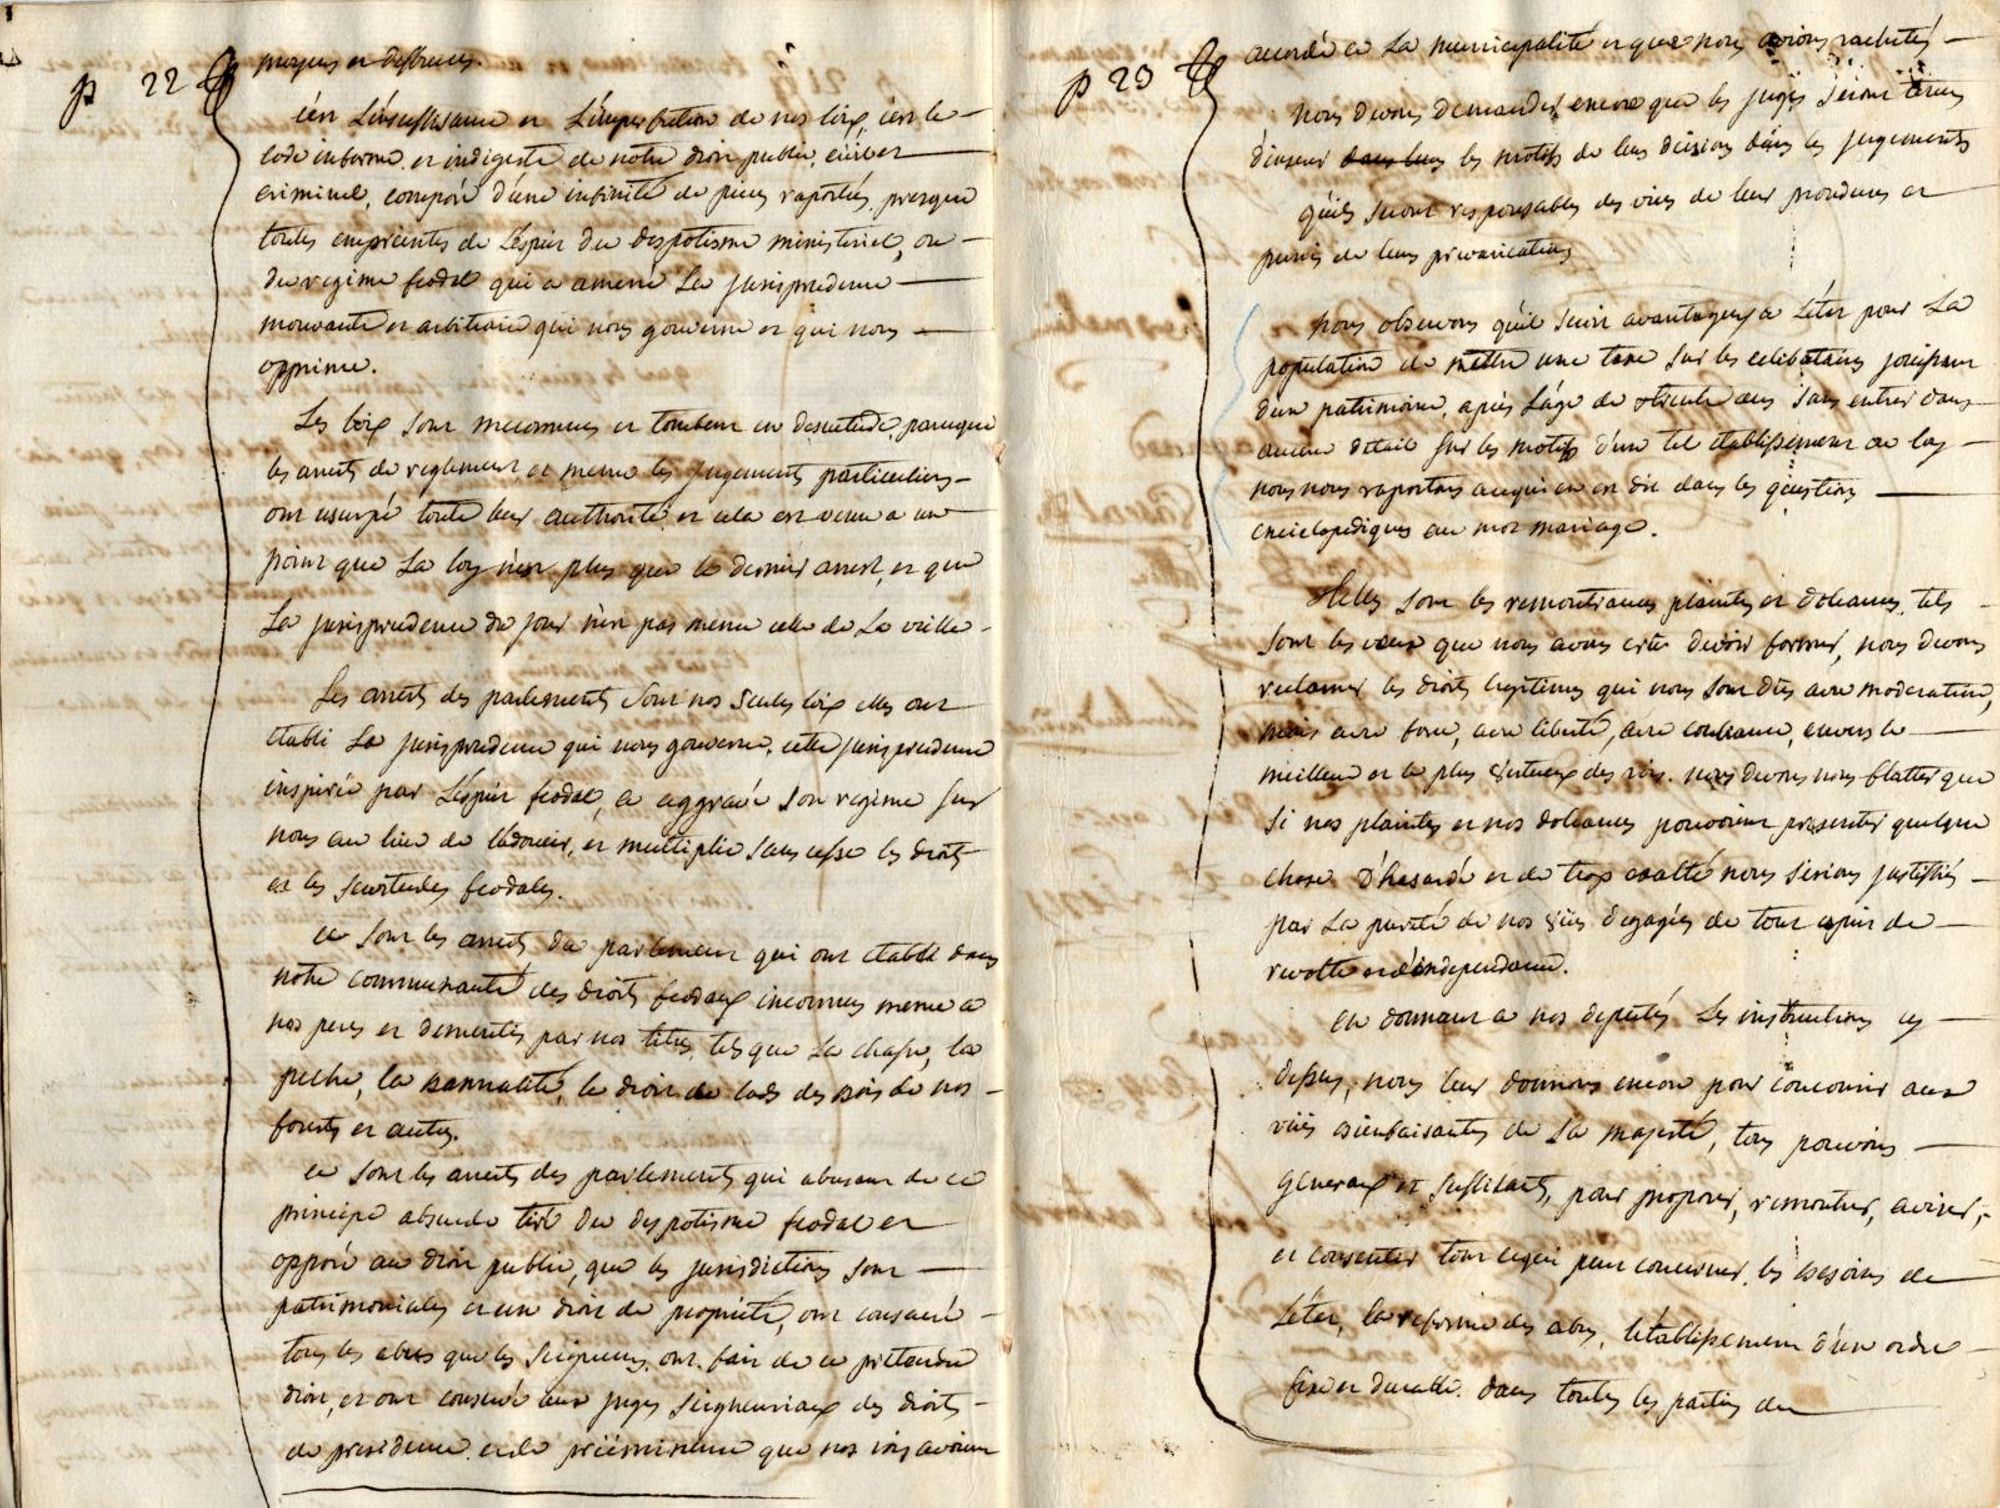 p 22
moyens et deffences.
c'est L'insuffisance et L'imperfection de nos loix, c'est le
code informe et indigeste de notre droit public, civil et
criminel, composé d'une infinité de pieces raportées, presque
toutes empreintes de L'esprit du despotisme ministeriel, ou
du regime feodal qui a amené La jurisprudence
mouvante et arbitraire qui nous gouverne et qui nous
opprime.
Les loix sont meconnues et tombent en desuetude, parceque
les arrets de reglement et meme les jugements particuliers
ont usurpé toute leur authorité et cela est venu a un
point que La loy n'est plus que le dernier arrest, et que
La jurisprudence du jour n'est pas meme celle de La veille
Les arrets des parlements sont nos seules loix elles ont
etabli La jurisprudence qui nous gouverne, cette jurisprudence
inspirée par L'esprit feodal, a aggravé son regime sur
nous au lieu de l'adoucir, et multiplie sans cesse les droits
et les servitudes feodales.
ce sont les arrets du parlement qui ont etabli dans
notre communauté des droits feodaux inconnus meme a
nos peres et dementis par nos titres, tels que La chasse, la
peche, la bannalité, le droit de lods des bois de nos
forests et autres.
ce sont les arrets des parlements qui abusant de ce
principe absurde tiré du despotisme feodal et
opposé au droit public, que les jurisdictions sont
patrimoniales et un droit de propriété, ont consacré
tous les abus que les seigneurs ont fait de ce pretendu
droit, et ont conservé aux juges seigneuriaux des droits
de presidence et de préeminence que nos rois avoient
p 23
accordé a La municipalité et que nous avions rachetés
nous devons demander encore que les juges seront tenus
d'inserer dans leurs les motifs de leurs décisions dans les jugements
qu'ils seront responsables des vices de leur procedures et
punis de leurs prevarications
nous observons qu'il seroit avantageux a L'état pour La
population de mettre une taxe sur les celibataires jouissant
d'un patrimoine, après L'âge de trente ans sans entrer dans
aucun détail sur les motifs d'un tel etablissement ou loy
nous nous raportons a ce qui en est dit dans les questions
enciclopediques au mot mariage.
telles sont les remontrances plaintes et doleances, tels
sont les vœux que nous avons crû devoir former, nous devons
reclamer les droits legitimes qui nous sont dûs avec moderation,
mais avec force, avec liberté, avec confiance, envers le
meilleur et le plus vertueux des rois. nous devons nous flatter que
si nos plaintes et nos doleances pouvoient presenter quelque
chose d'hasardé et de trop exalté nous serions justiffiés
par La pureté de nos vües degagées de tout esprit de
revolte et d'independance.
en donnant a nos deputés Les instructions cy
dessus, nous leur donnons encore pour concourir aux
vües bienfaisantes de Sa majesté, tous pouvoirs
generaux et suffisants, pour proposer, remontrer, aviser,
et consentir tout ce qui peut concerner les besoins de
L'état, la reforme des abus, l'établissement d'un ordre
fixe et durable dans toutes les parties du